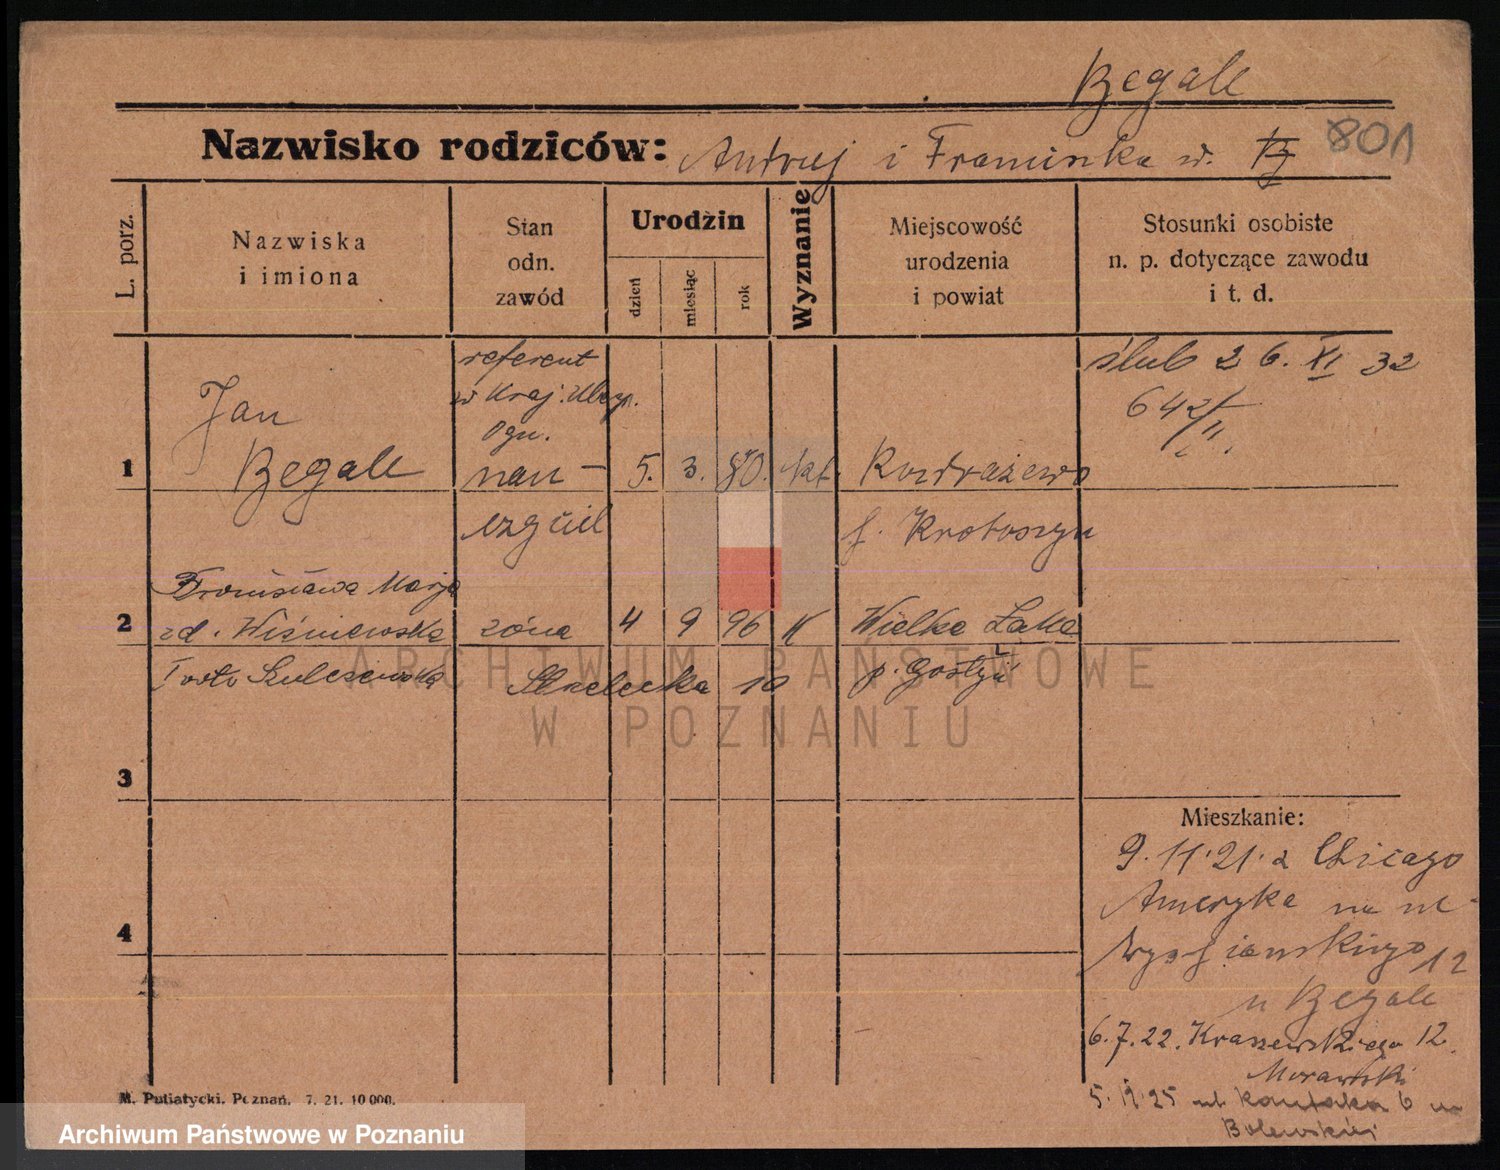 Begale
Nazwisko rodziców: Andrzej i Franciszka w. B 801
L. porz.
Nazwiska
i imiona
Stan
odn.
zawód
Urodżin
dzień
miesiąc
rok
Wyznanie
Miejscowość
urodzenia
i powiat
Stosunki osobiste
n. p. dotyczące zawodu
i t. d.
referent
w Kraj. Ubezp.
Ogn.
ślub 26. XI 32
642/II.
Jan
1 Begale nau- 5. 3. 80. kt. Rozdrażewo
czyciel p. Krotoszyn
Bronisława Marja
2 zd. Wiśniewska żona 4 9 96 K Wielka Łąka
Szulczewska Strzelecka 10 p. Gostyń
ARCHIWUM PAŃSTWOWE
W POZNANIU
3
Mieszkanie:
9.11.21. z Chicago
Ameryka na ul.
4 Wyspiańskiego 12
u Begale
6.7.22. Kraszewskiego 12.
Morawski
5. 11 25 ul. Kantaka 6 u
Bolewskiej
M. Putiatycki. Poznań. 7. 21. 10 000.
Archiwum Państwowe w Poznaniu